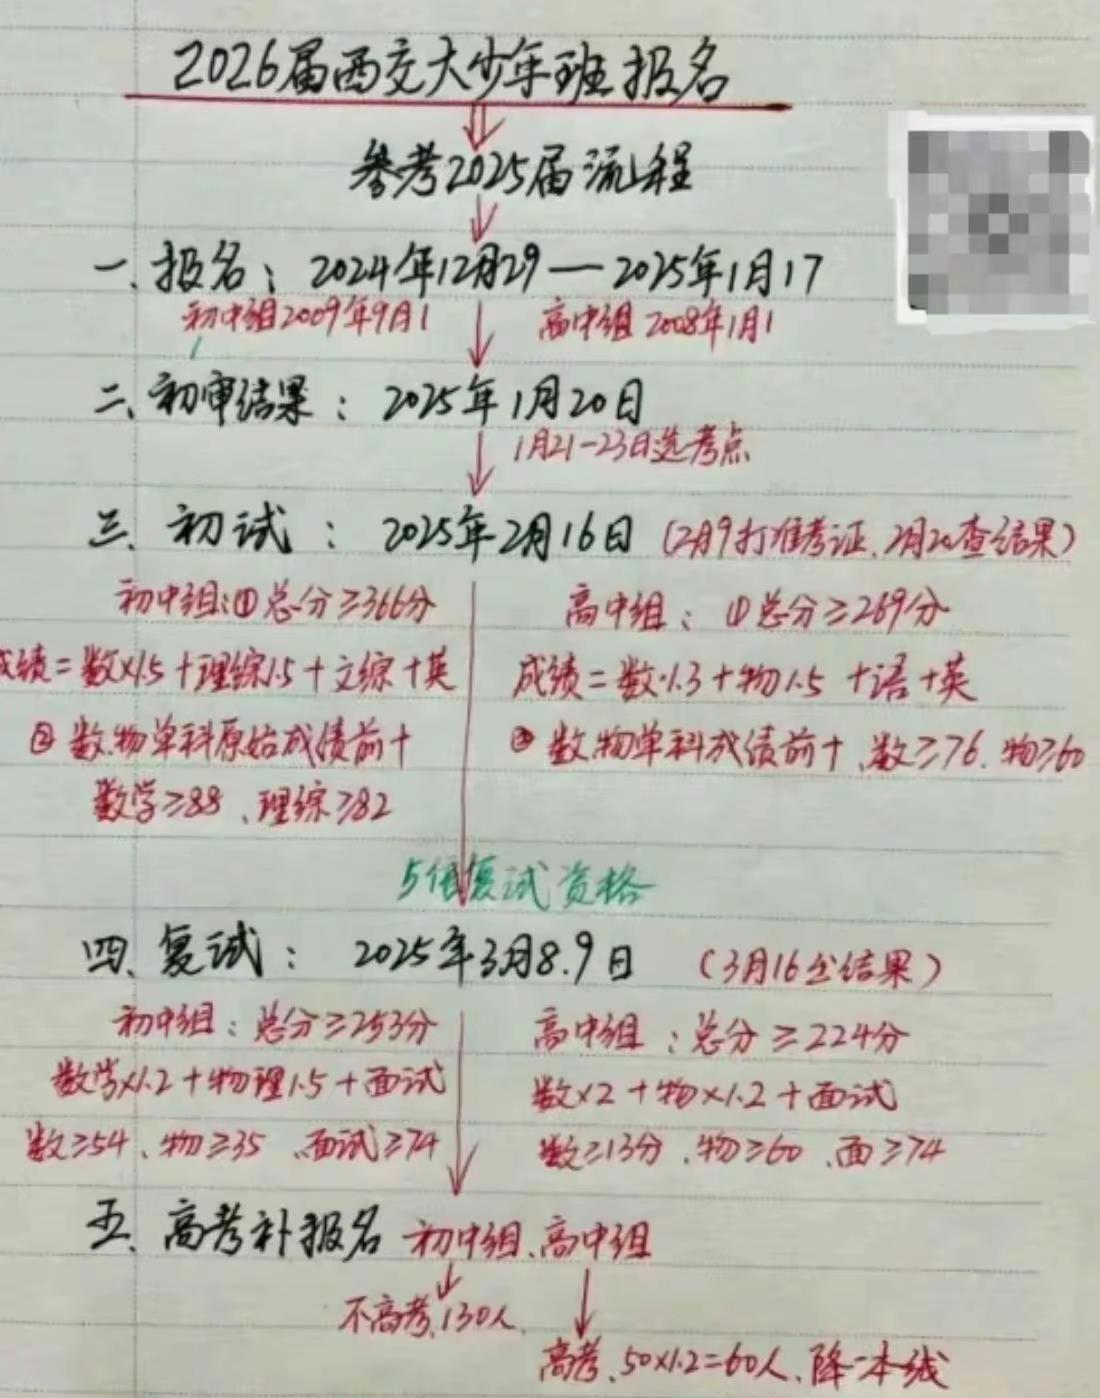 2026届西交大少年班报名
参考2025届流程
一、报名：2024年12月29—2025年1月17
初中组2009年9月1 高中组2008年1月1
二、初审结果：2025年1月20日
1月21-23日选考点
三、初试：2025年2月16日（2月9打准考证、2月20查结果）
初中组：①总分≥366分 高中组：①总分≥269分
成绩=数×1.5+理综1.5+文综+英 成绩=数·1.3+物1.5+语+英
②数.物单科原始成绩前十 ②数.物单科成绩前十、数≥76.物≥60
数学≥88、理综≥82
5倍复试资格
四、复试：2025年3月8.9日（3月16出结果）
初中组：总分≥253分 高中组：总分≥224分
数学×1.2+物理1.5+面试 数×2+物×1.2+面试
数≥54、物≥35、面试≥74 数≥13分、物≥60、面≥74
五、高考补报名 初中组、高中组
不高考、130人
高考、50×1.2=60人、降一本线